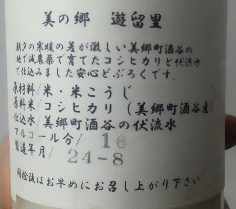 美の郷 遊留里
朝夕の寒暖の差が激しい美郷町酒谷の
地で減農薬で育てたコシヒカリと伏流水
で仕込みました安心どぶろくです。
原材料/米・米こうじ
原料米 コシヒカリ(美郷町酒谷産)
仕込水 美郷町酒谷の伏流水
アルコール分/16
製造年月/24-8
開栓後はお早めにお召し上がり下さい